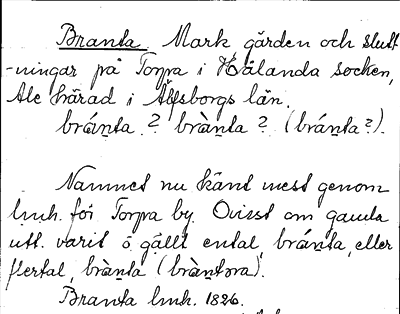 Branta Mark, gärden och slutt-
-ningar på Torpa i Hålanda socken,
Ale härad i Älfsborgs län.
bránta ? brànta ? (bránta ?).
Namnet nu känt mest genom
lmh. för Torpa by. Ovisst om gamla
utt. varit o. gällt ental, bránta, eller
flertal, brànta (bràntora).
Branta lmh. 1826.